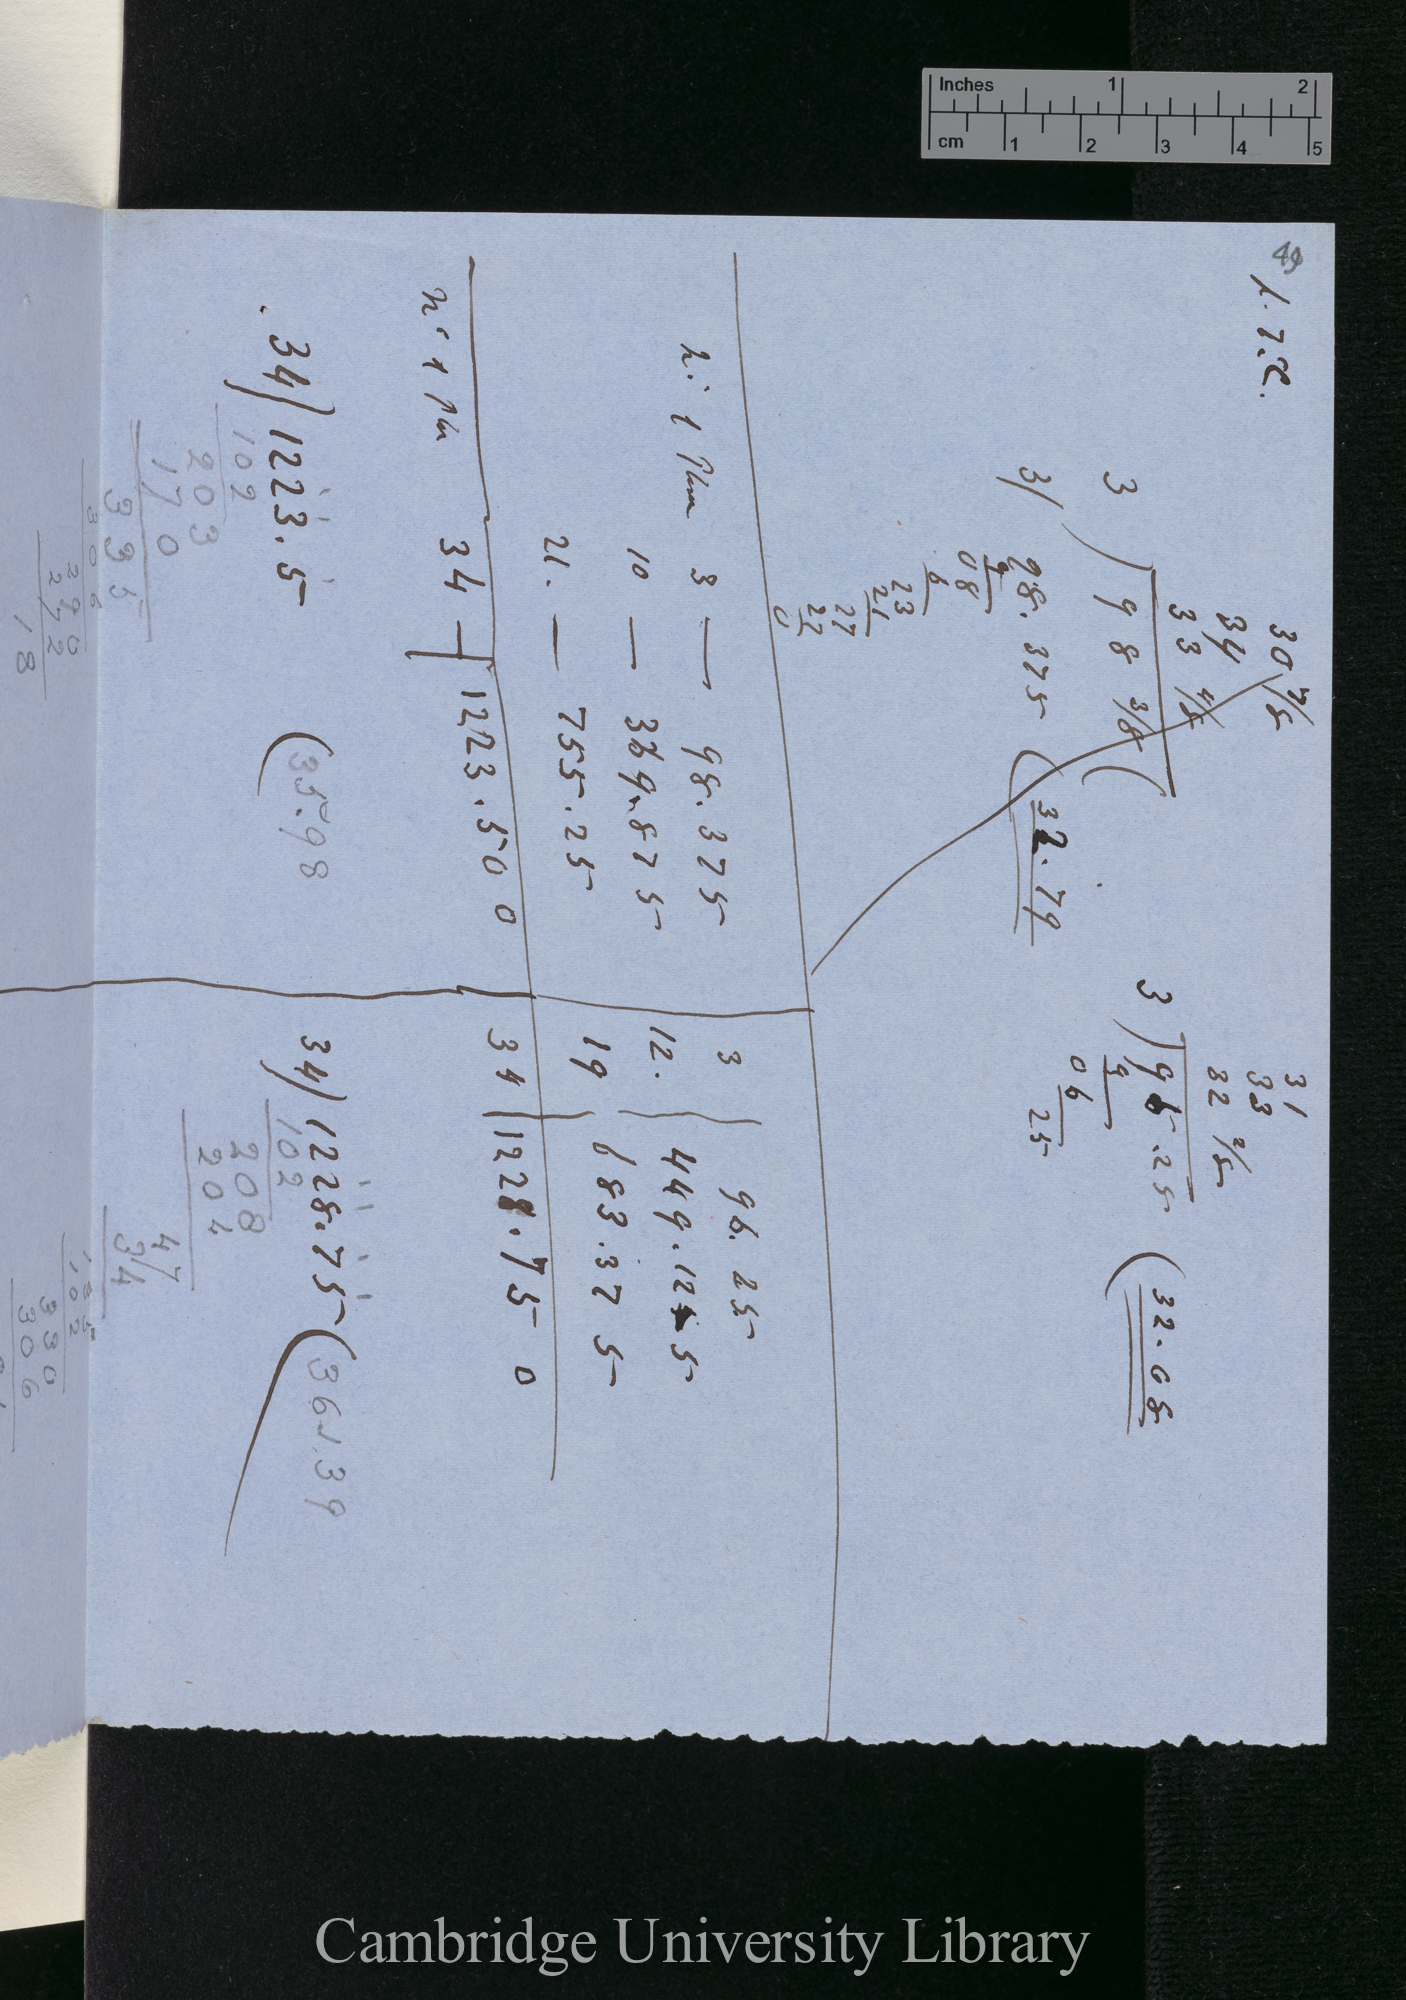 Inches 1 2
cm 1 2 3 4 5
49
30 7/8
34
33 4/8
3 ) 98 3/8 (
3 ) 98.375 ( 32.79
9
08
6
23
21
27
27
0
31
33
32 2/8
3 ) 96.25 ( 32.08
9
06
25
3 — 98.375
10 — 369.875
21. — 755.25
34 — 1223.500
3 96.25
12. 449.125
19 683.375
34 1228.750
34 ) 1223.5 ( 35.98
102
203
170
335
306
290
272
18
34 ) 1228.75 ( 36.139
102
208
204
47
34
135
102
330
306
Cambridge University Library